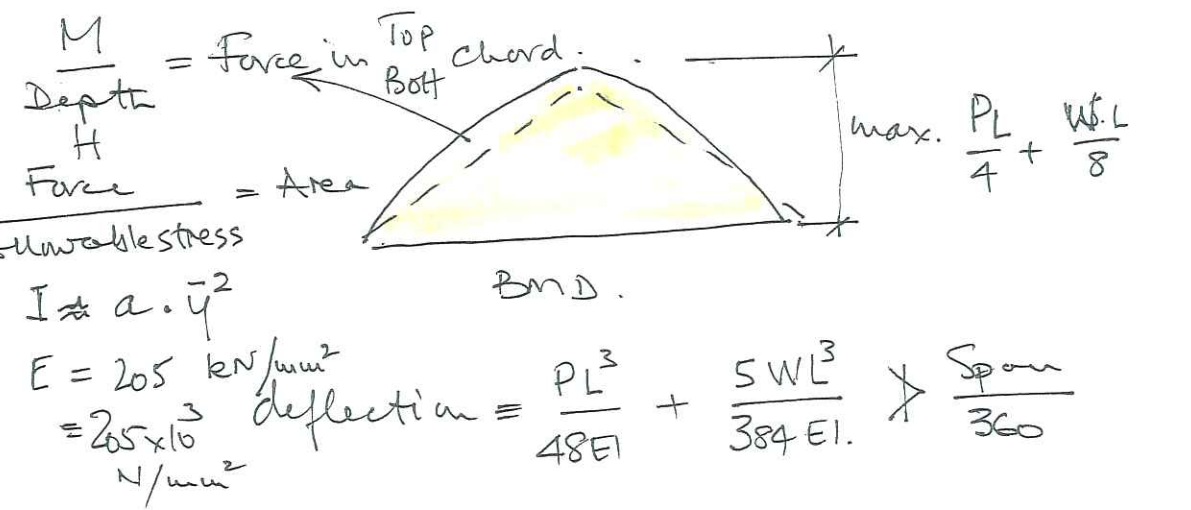 M/Depth H = Force in Top Bott chord.
Force/allowable stress = Area
max. PL/4 + W.L/8
BMD.
I ≈ a.ȳ²
E = 205 kN/mm²
= 205x10³ N/mm²
deflection = PL³/48EI + 5WL³/384EI. ≯ Span/360